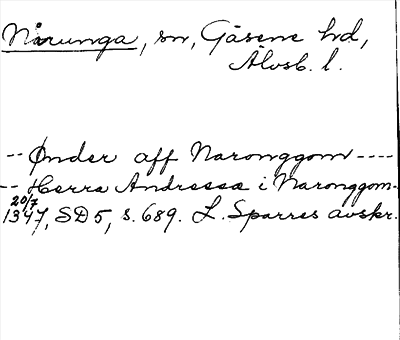 Nårunga, sn, Gäsene hd,
Älvsb. l.
-- Ønder aff Naronggom ----
-- Herra Andressa i Naronggom-
20/7
1347, SD5, s. 689. L. Sparres avskr.